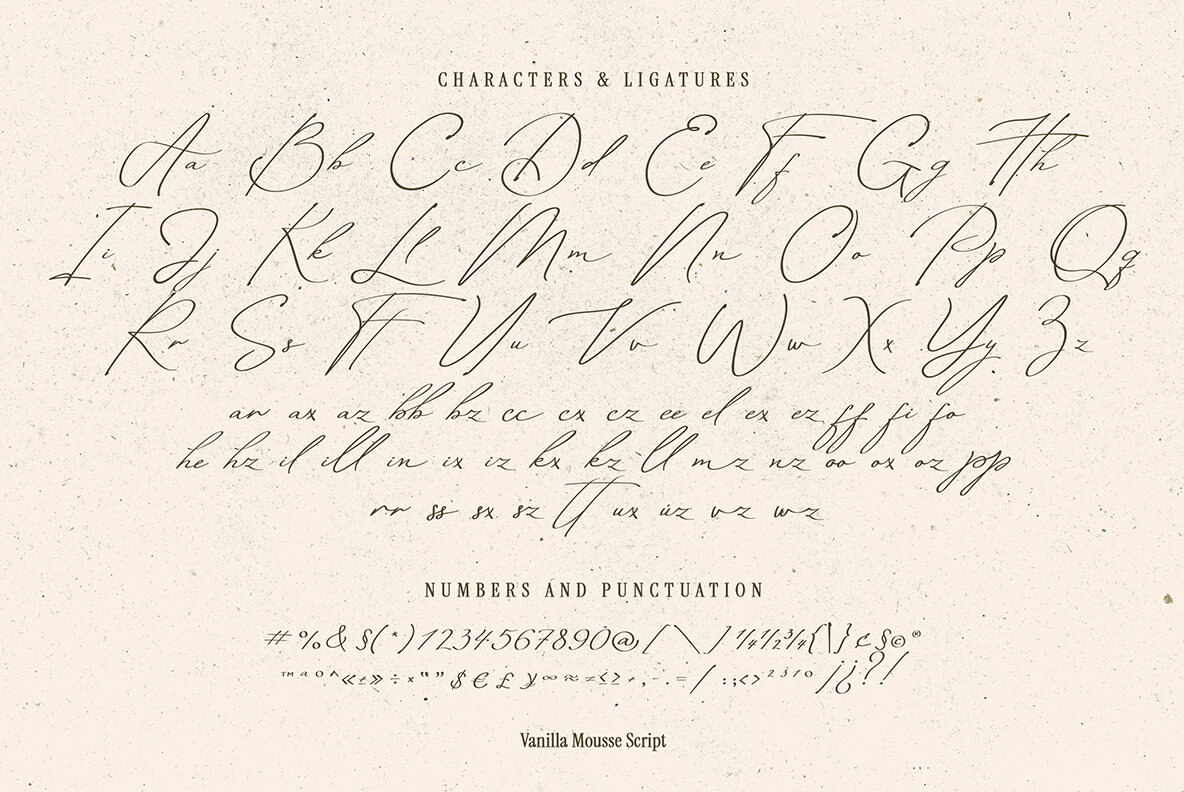 CHARACTERS & LIGATURES
Aa Bb Cc Dd Ee Ff Gg Hh
Ii Jj Kk Ll Mm Nn Oo Pp Qq
Rr Ss Tt Uu Vv Ww Xx Yy Zz
ar ax az bb bz cc cx cz ee el ex ez ff fi fo
he hz il ill in ix iz kx kz ll mz nz oo ox oz pp
rr ss sx sz tt ux uz vz wz
NUMBERS AND PUNCTUATION
# % & § ( * ) 1234567890 @ [ \ ] ¼ ½ ¾ { | } ¢ § © ®
™ ª º ^ « ± » ÷ × “ ” $ € £ ¥ ∞ ≈ ≠ ≤ ≥ + , - . = / : ; < > ² ³ ¹ ⁰ ¡ ¿ ? !
Vanilla Mousse Script